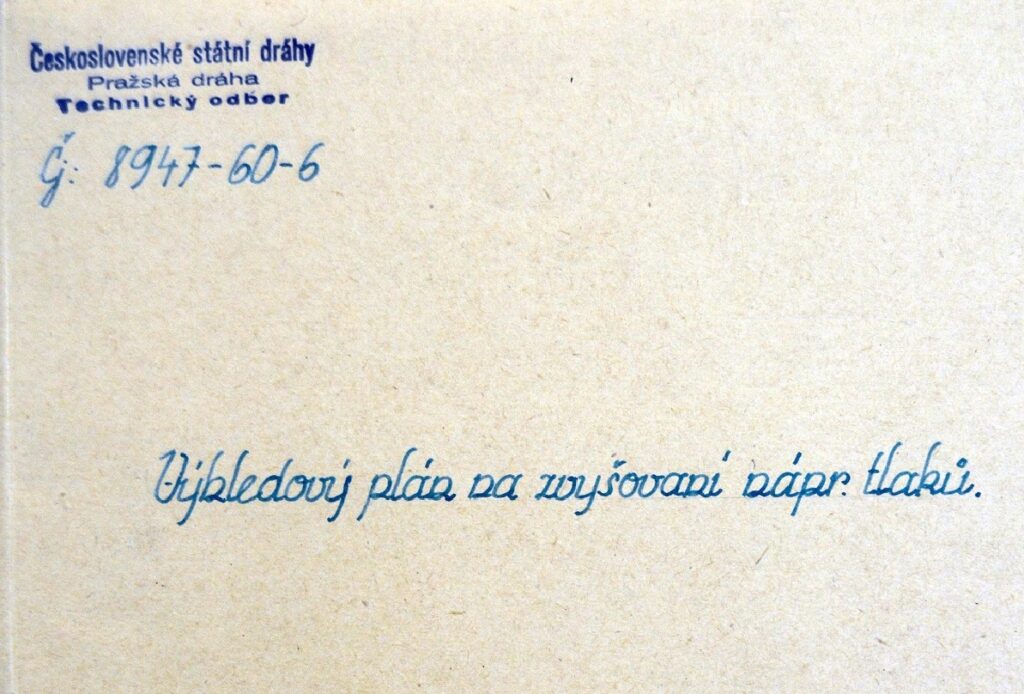 Československé státní dráhy
Pražská dráha
Technický odbor
Čj: 8947-60-6
Výhledový plán na zvyšovaní nápr. tlaků.